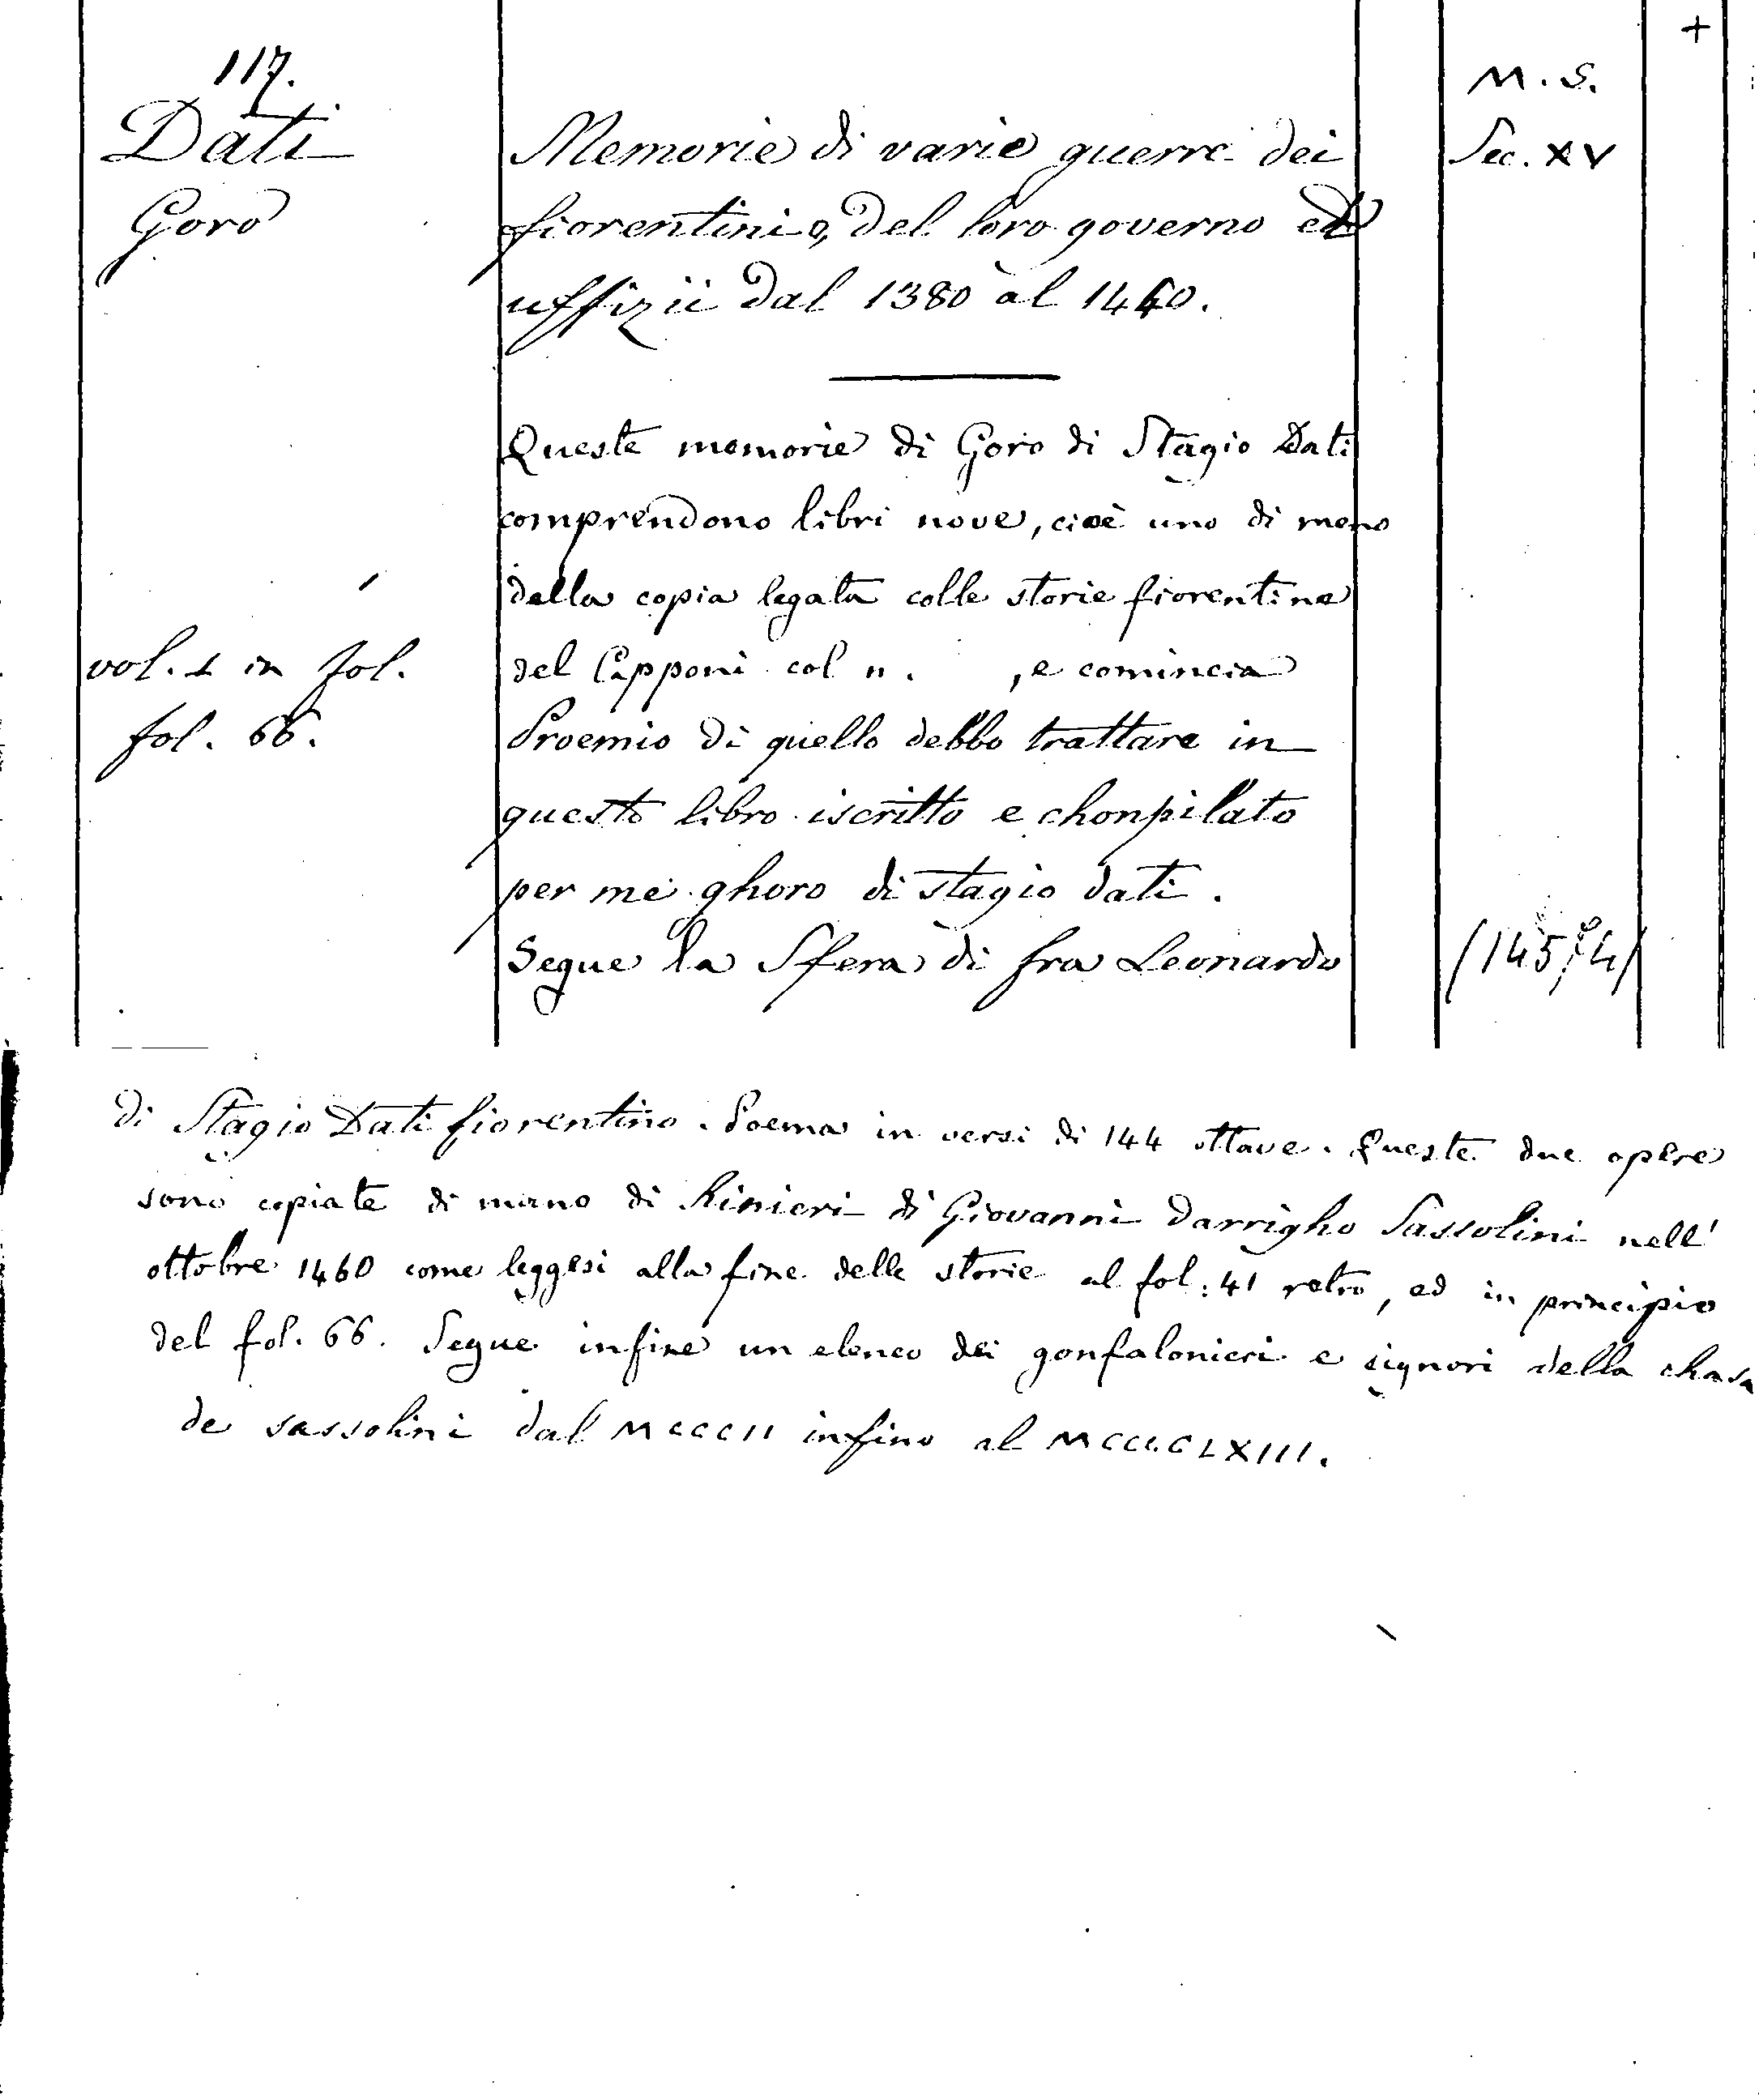 +
117.
M. S.
Dati
Memorie di varie guerre dei
Sec. XV
Goro
fiorentini e, del loro governo ed
uffizii dal 1380 al 1440.
Queste memorie di Goro di Stagio Dati
comprendono libri nove, cioè uno di meno
della copia legata colle storie fiorentine
vol. 1 in fol.
del Capponi col n. , e comincia
fol. 66.
Proemio di quello debbo trattare in
questo libro iscritto e chonpilato
per me ghoro di stagio dati.
Segue la Sfera di fra Leonardo
di Stagio Dati fiorentino. Poema in versi di 144 ottave. Queste due opere
sono copiate di mano di Rinieri di Giovanni Darrigho Sassolini nell'
ottobre 1460 come leggesi alla fine delle storie al fol: 41 retro, ed in principio
del fol. 66. Segue infine un elenco dei gonfalonieri e signori della chasa
de sassolini dal MCCCII infino al MCCCCLXIII.